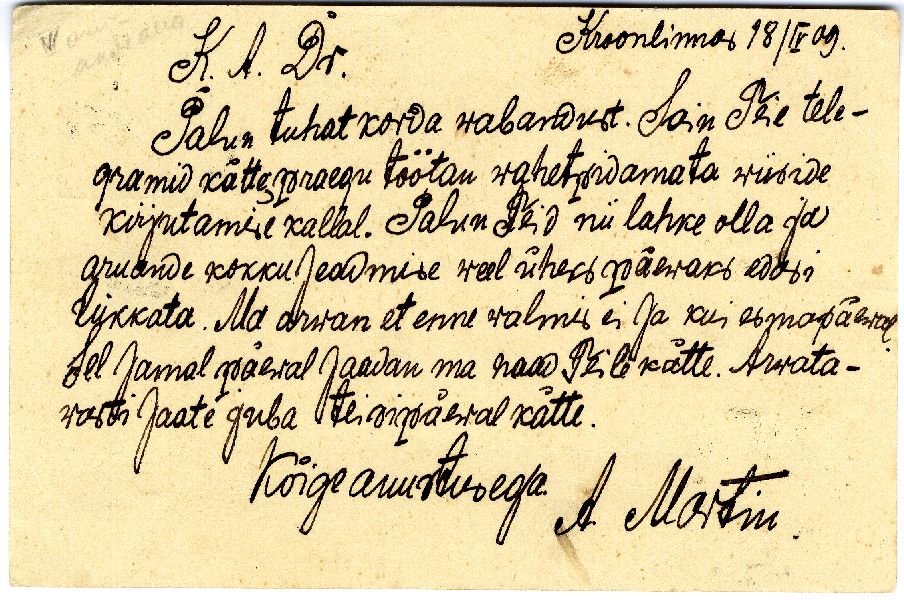 Kroonlinnas 18/IV 09.
K. A. Dr.
Palun tuhat korda wabandust. Sain Teie tele-
gramid kätte, praegu töötan wahetpidamata wiiside
kirjutamise kallal. Palun Teid nii lahke olla ja
aruande kokku seadmise weel üheks päewaks edasi
lükkata. Ma arwan et enne walmis ei sa kui esmapäewal.
Sel samal päewal saadan ma naad Teile kätte. Arwata-
wasti saate juba teisipäewal kätte.
Kõige austusega
A. Martin.